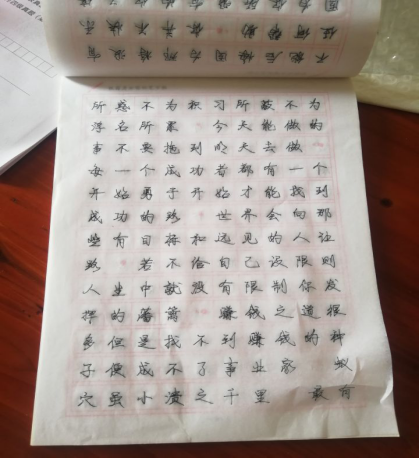 所惑不为积习所蔽不为
浮名所累 今天能做的
事不要拖到明天去做
每一个成功者都有一个
开始勇于开始才能找到
成功的路 世界会向那
些有目标和远见的人让
路 若不给自己设限则
人生中就没有限制你发
挥的藩篱 赚钱之道很
多但是找不到赚钱的种
子便成不了事业家 蚁
穴虽小溃之千里 最有